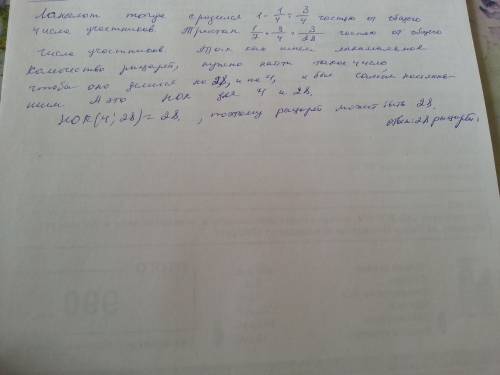 Ланселот тогда сразился 1 - 1/4 = 3/4 частью от общего
числа участников Тристан 1/7 · 3/4 = 3/28 частью от общего
числа участников Так как имеем минимальное
количество рыцарей, нужно найти такое число,
чтобы оно делилось на 28, и на 4, и был самым
А это НОК для 4 и 28.
НОК (4; 28) = 28. , поэтому рыцарей может быть 28.
Ответ: 28 рыцарей.